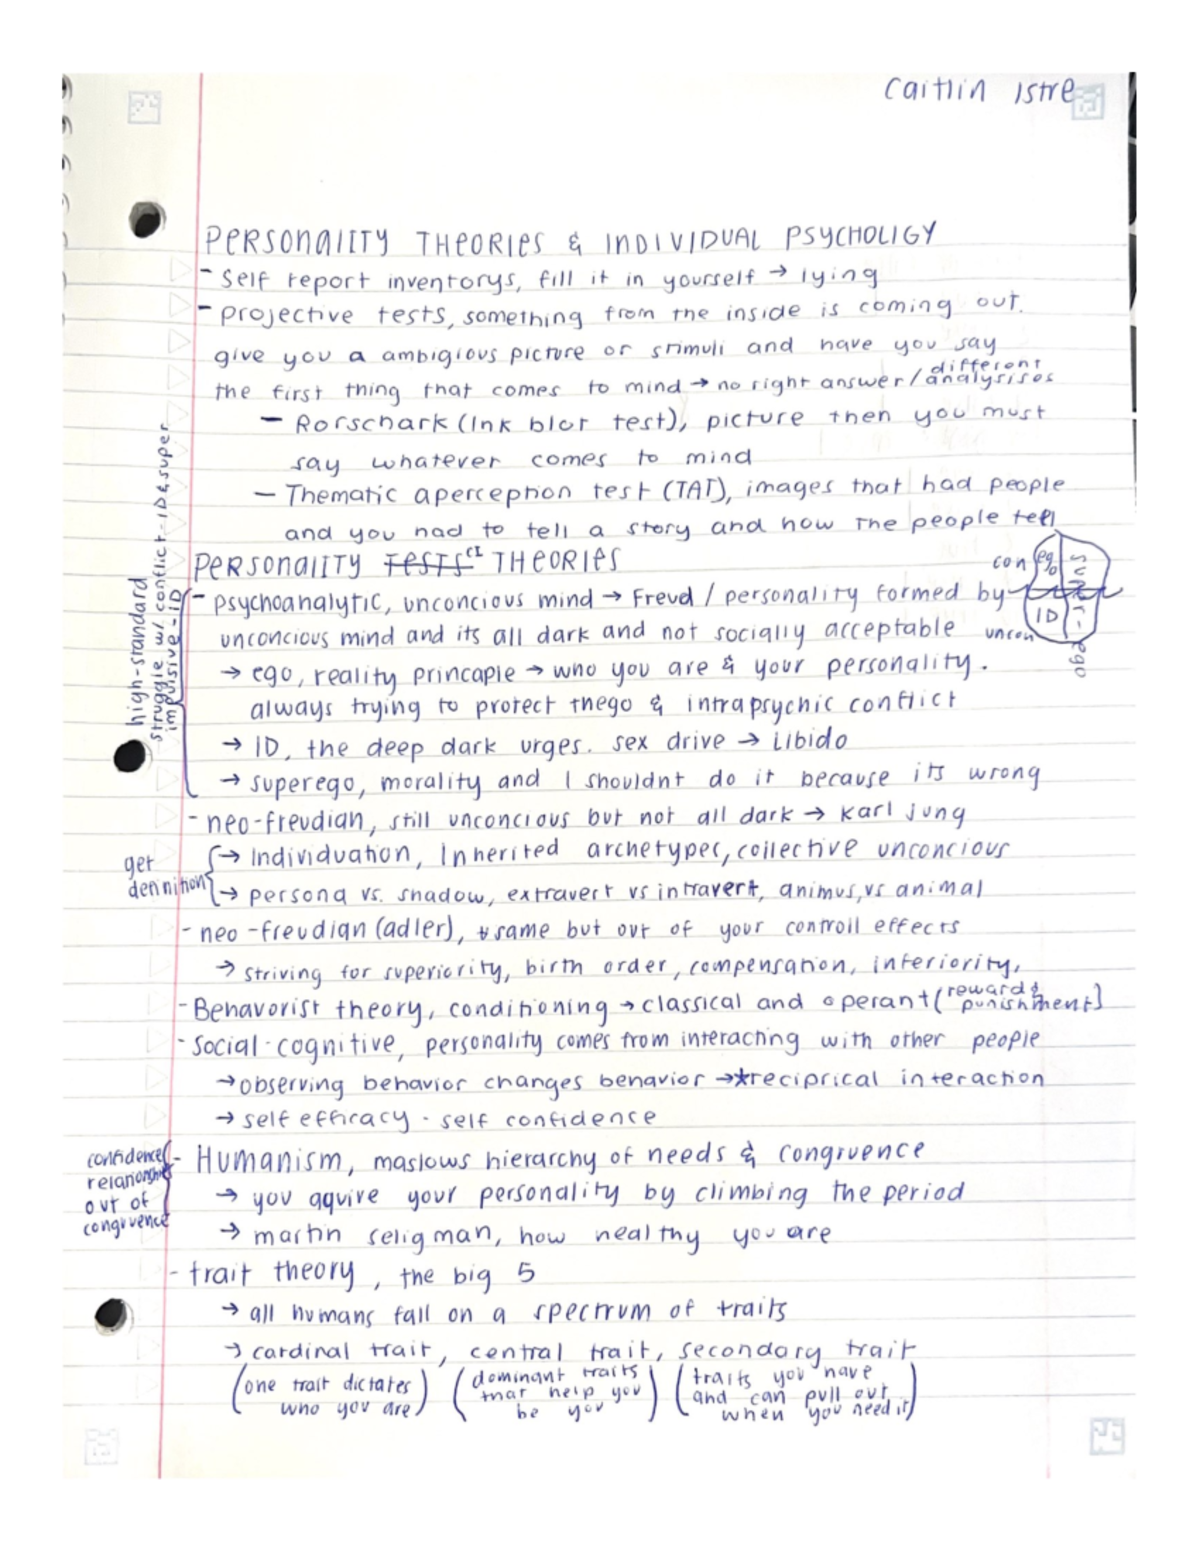 Caitlin Istre
PERSONALITY THEORIES & INDIVIDUAL PSYCHOLIGY
- Self report inventorys, fill it in yourself → lying
- projective tests, something from the inside is coming out.
give you a ambigious picture or stimuli and have you say
different
the first thing that comes to mind → no right answer/analysises
- Rorschark (Ink blot test), picture then you must
say whatever comes to mind
- Thematic aperception test (TAT), images that had people
and you had to tell a story and how the people tell
PERSONALITY TESTS CI THEORIES
con ego super-ego
ID
uncon
- psychoanalytic, unconcious mind → Freud / personality formed by
unconcious mind and its all dark and not socially acceptable
→ ego, reality princaple → who you are & your personality.
always trying to protect thego & intrapsychic conflict
→ ID, the deep dark urges. sex drive → Libido
→ superego, morality and I shouldnt do it because its wrong
high-standard
struggle w/ conflict - ID & super
impulsive - ID
- neo-freudian, still unconcious but not all dark → Karl jung
get
definition
→ Individuation, Inherited archetypes, collective unconcious
→ persona vs. shadow, extravert vs intravert, animus, vs animal
- neo-freudian (adler), same but out of your controll effects
→ striving for superiority, birth order, compensation, inferiority,
- Behavorist theory, conditioning → classical and operant (reward & punishment)
- Social-cognitive, personality comes from interacting with other people
→ observing behavior changes behavior → *reciprical interaction
→ self efficacy - self confidence
confidence
relationship
out of
congruence
- Humanism, maslows hierarchy of needs & congruence
→ you aquire your personality by climbing the period
→ martin seligman, how healthy you are
- trait theory, the big 5
→ all humans fall on a spectrum of traits
→ cardinal trait, central trait, secondary trait
(one trait dictates who you are) (dominant traits that help you be you) (traits you have and can pull out when you need it)